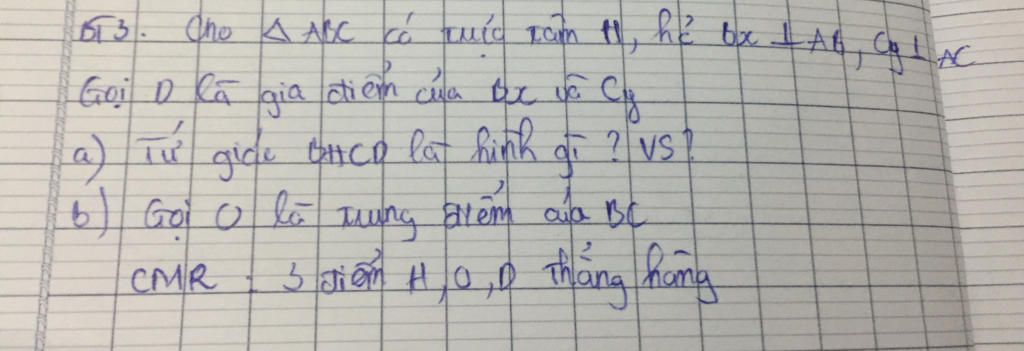 BT3. Cho Δ ABC có trực tâm H, kẻ Bx ⊥ AB, Cy ⊥ AC
Gọi D là giao điểm của Bx và Cy
a) Tứ giác BHCD là hình gì ? VS?
b) Gọi O là trung điểm của BC
CMR : 3 điểm H, O, D thẳng hàng